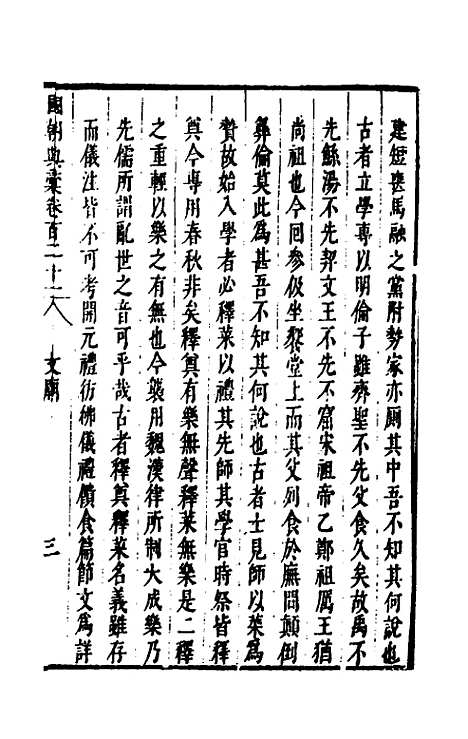 建短喪馬融之黨附勢家亦厠其中吾不知其何說也
古者立學專以明倫子雖齊聖不先父食久矣故禹不
先鯀湯不先契文王不先不窋宋祖帝乙鄭祖厲王猶
尚祖也今回參伋坐饗堂上而其父列食於廡間顛倒
彝倫莫此為甚吾不知其何說也古者士見師以菜為
贄故始入學者必釋菜以禮其先師其學官時祭皆釋
奠今專用春秋非矣釋奠有樂無聲釋菜無樂是二釋
之重輕以樂之有無也今襲用魏漢律所制大成樂乃
先儒所謂亂世之音可乎哉古者釋奠釋菜名義雖存
而儀注皆不可考開元禮彷彿儀禮饋食篇節文為詳
國朝典彙卷百二十一 文廟 三